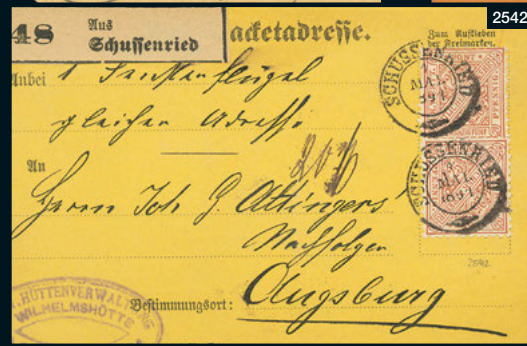 2542
48 Aus Schussenried
acketadresse.
Zum Aufkleben
der Freimarken.
Anbei 1
gleicher Adresse
An
Herrn Joh. G. Ottingers
Nachfolger
Bestimmungsort: Augsburg
SCHUSSENRIED
MAI
SCHUSSENRIED
PFENNIG
HÜTTENVERWALTUNG
WILHELMSHÜTTE
2542